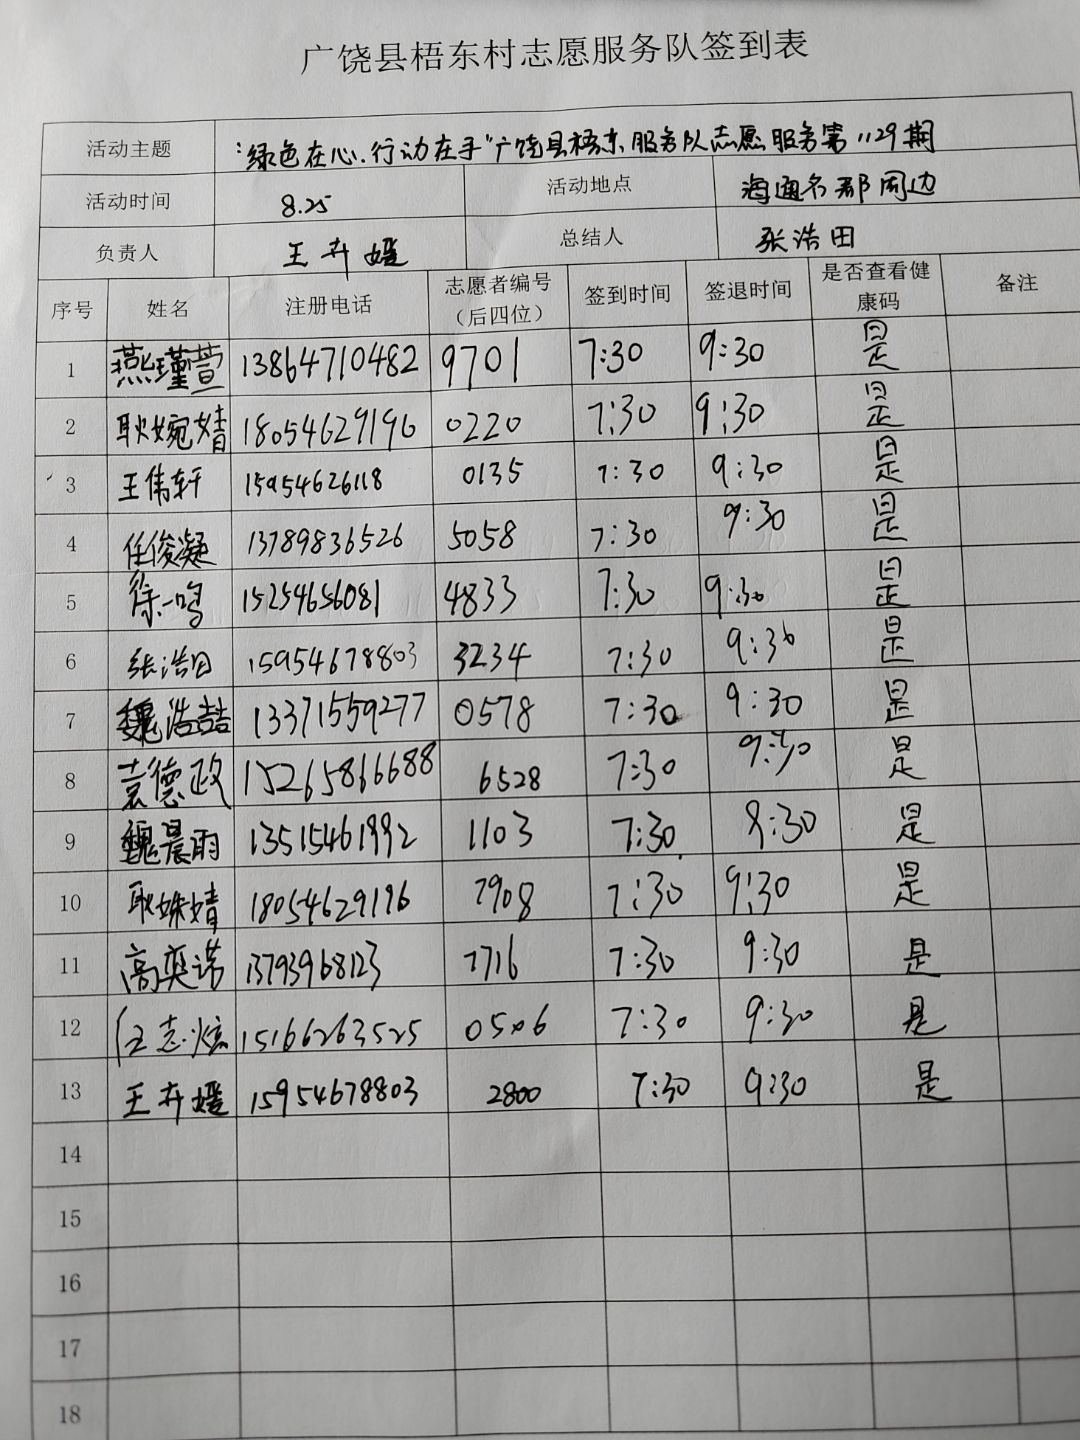 广饶县梧东村志愿服务队签到表
活动主题 “绿色在心.行动在手”广饶县梧东服务队志愿服务第1129期
活动时间 8.25 活动地点 海通名郡周边
负责人 王卉媛 总结人 张浩田
序号 姓名 注册电话 志愿者编号（后四位） 签到时间 签退时间 是否查看健康码 备注
1 燕瑾萱 13864710482 9701 7:30 9:30 是
2 耿婉婧 18054629196 0220 7:30 9:30 是
3 王伟轩 15954626118 0135 7:30 9:30 是
4 任俊凝 13789836526 5058 7:30 9:30 是
5 徐一鸣 15254656081 4833 7:30 9:30 是
6 张浩田 15954678803 3234 7:30 9:30 是
7 魏浩喆 13371559277 0578 7:30 9:30 是
8 袁德政 15265866688 6528 7:30 9:30 是
9 魏晨雨 13515461992 1103 7:30 9:30 是
10 耿姝婧 18054629196 7908 7:30 9:30 是
11 高奕诺 13793968123 7716 7:30 9:30 是
12 任志炫 15166263525 0506 7:30 9:30 是
13 王卉媛 15954678803 2800 7:30 9:30 是
14
15
16
17
18